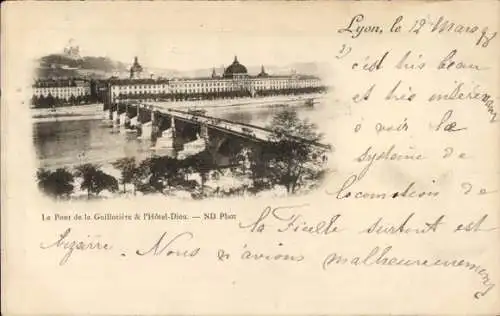 Lyon, le 12 Mars 98
c'est tris beau
et tris intéressant
à voir le
système de
locomotion de
Le Pont de la Guillotière & l'Hôtel-Dieu. — ND Phot
la Ficelle surtout est
bizarre. Nous n'avions malheureusement